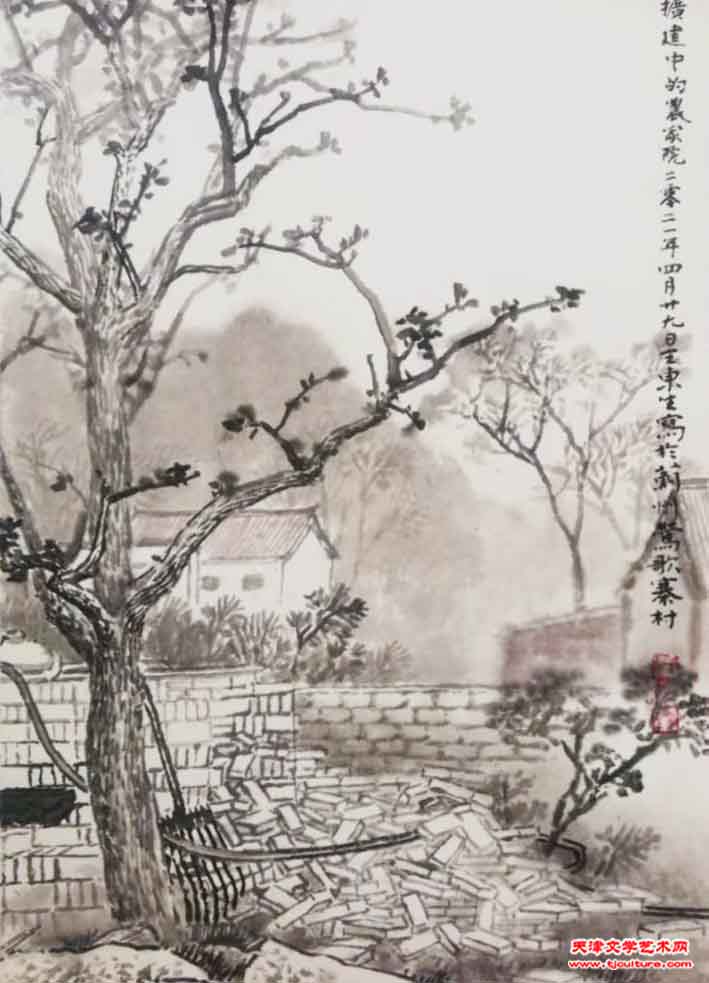 擴建中的農家院二零二一年四月廿九日王東生寫於薊州鶯歌寨村
天津文学艺术网
www.tjculture.com